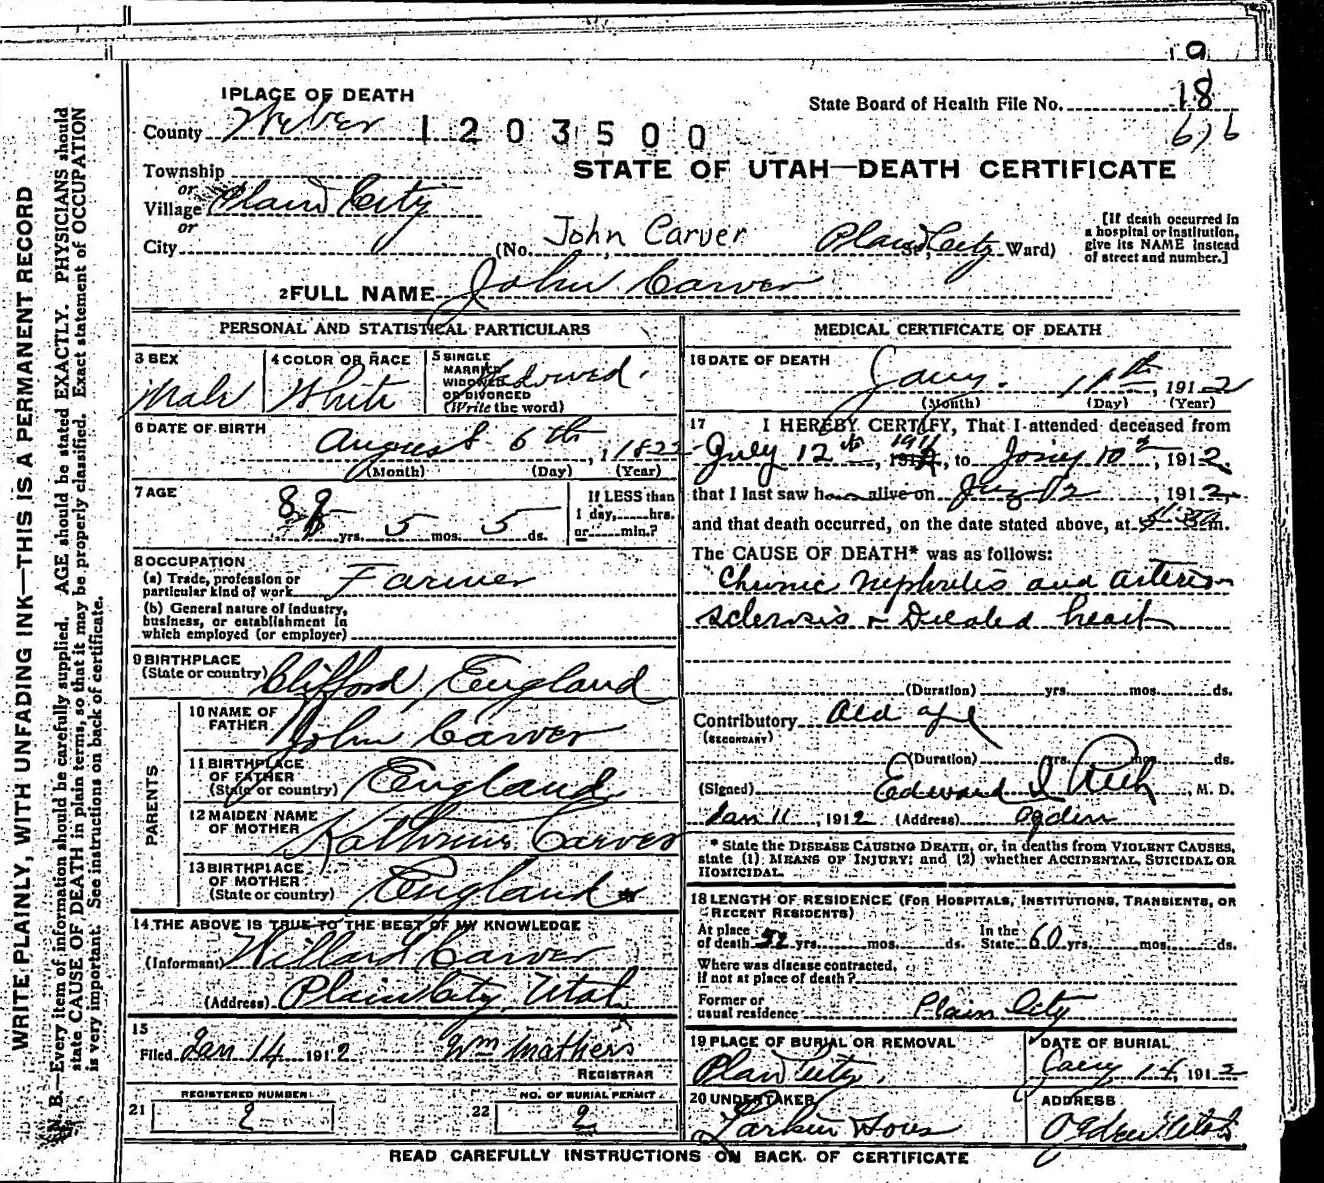 9
1 PLACE OF DEATH
State Board of Health File No. 18
County Weber 1203500
616
STATE OF UTAH—DEATH CERTIFICATE
Township
or
Village Plain City
or
City (No. John Carver Plain City St.; Ward)
[If death occurred in
a hospital or institution,
give its NAME instead
of street and number.]
2 FULL NAME John Carver
PERSONAL AND STATISTICAL PARTICULARS
3 SEX
Male
4 COLOR OR RACE
White
5 SINGLE
MARRIED
WIDOWED
OR DIVORCED
(Write the word)
Widowed.
6 DATE OF BIRTH
August 6th, 1822
(Month) (Day) (Year)
7 AGE
89 yrs. 5 mos. 5 ds.
If LESS than
1 day, hrs.
or min.?
8 OCCUPATION
(a) Trade, profession or
particular kind of work Farmer
(b) General nature of industry,
business, or establishment in
which employed (or employer)
9 BIRTHPLACE
(State or country) Clifford England
PARENTS
10 NAME OF
FATHER John Carver
11 BIRTHPLACE
OF FATHER
(State or country) England
12 MAIDEN NAME
OF MOTHER Kathrine Carver
13 BIRTHPLACE
OF MOTHER
(State or country) England
14 THE ABOVE IS TRUE TO THE BEST OF MY KNOWLEDGE
(Informant) Willard Carver
(Address) Plain City, Utah
15
Filed Jan 14 1912 Wm Mathers
REGISTRAR
21 REGISTERED NUMBER
2
22 NO. OF BURIAL PERMIT
2
MEDICAL CERTIFICATE OF DEATH
16 DATE OF DEATH
Jany. 11th, 1912
(Month) (Day) (Year)
17 I HEREBY CERTIFY, That I attended deceased from
July 12th, 1911, to 10th, 1912,
that I last saw h alive on , 1912,
and that death occurred, on the date stated above, at m.
The CAUSE OF DEATH* was as follows:
Chronic Nephritis and arterio
sclerosis & heart
(Duration) yrs. mos. ds.
Contributory Old age
(SECONDARY)
(Duration) yrs. mos. ds.
(Signed) Edward I Rich, M. D.
Jan 11, 1912 (Address) Ogden
* State the DISEASE CAUSING DEATH, or, in deaths from VIOLENT CAUSES,
state (1) MEANS OF INJURY; and (2) whether ACCIDENTAL, SUICIDAL OR
HOMICIDAL.
18 LENGTH OF RESIDENCE (FOR HOSPITALS, INSTITUTIONS, TRANSIENTS, OR
RECENT RESIDENTS)
At place
of death 52 yrs. mos. ds.
In the
State 60 yrs. mos. ds.
Where was disease contracted,
If not at place of death?
Former or
usual residence Plain City
19 PLACE OF BURIAL OR REMOVAL
Plain City.
DATE OF BURIAL
Jany 14, 1912
20 UNDERTAKER
Larkin Sons
ADDRESS
Ogden Utah
READ CAREFULLY INSTRUCTIONS ON BACK OF CERTIFICATE
WRITE PLAINLY, WITH UNFADING INK—THIS IS A PERMANENT RECORD
N. B.—Every item of information should be carefully supplied. AGE should be stated EXACTLY. PHYSICIANS should
state CAUSE OF DEATH in plain terms, so that it may be properly classified. Exact statement of OCCUPATION
is very important. See instructions on back of certificate.